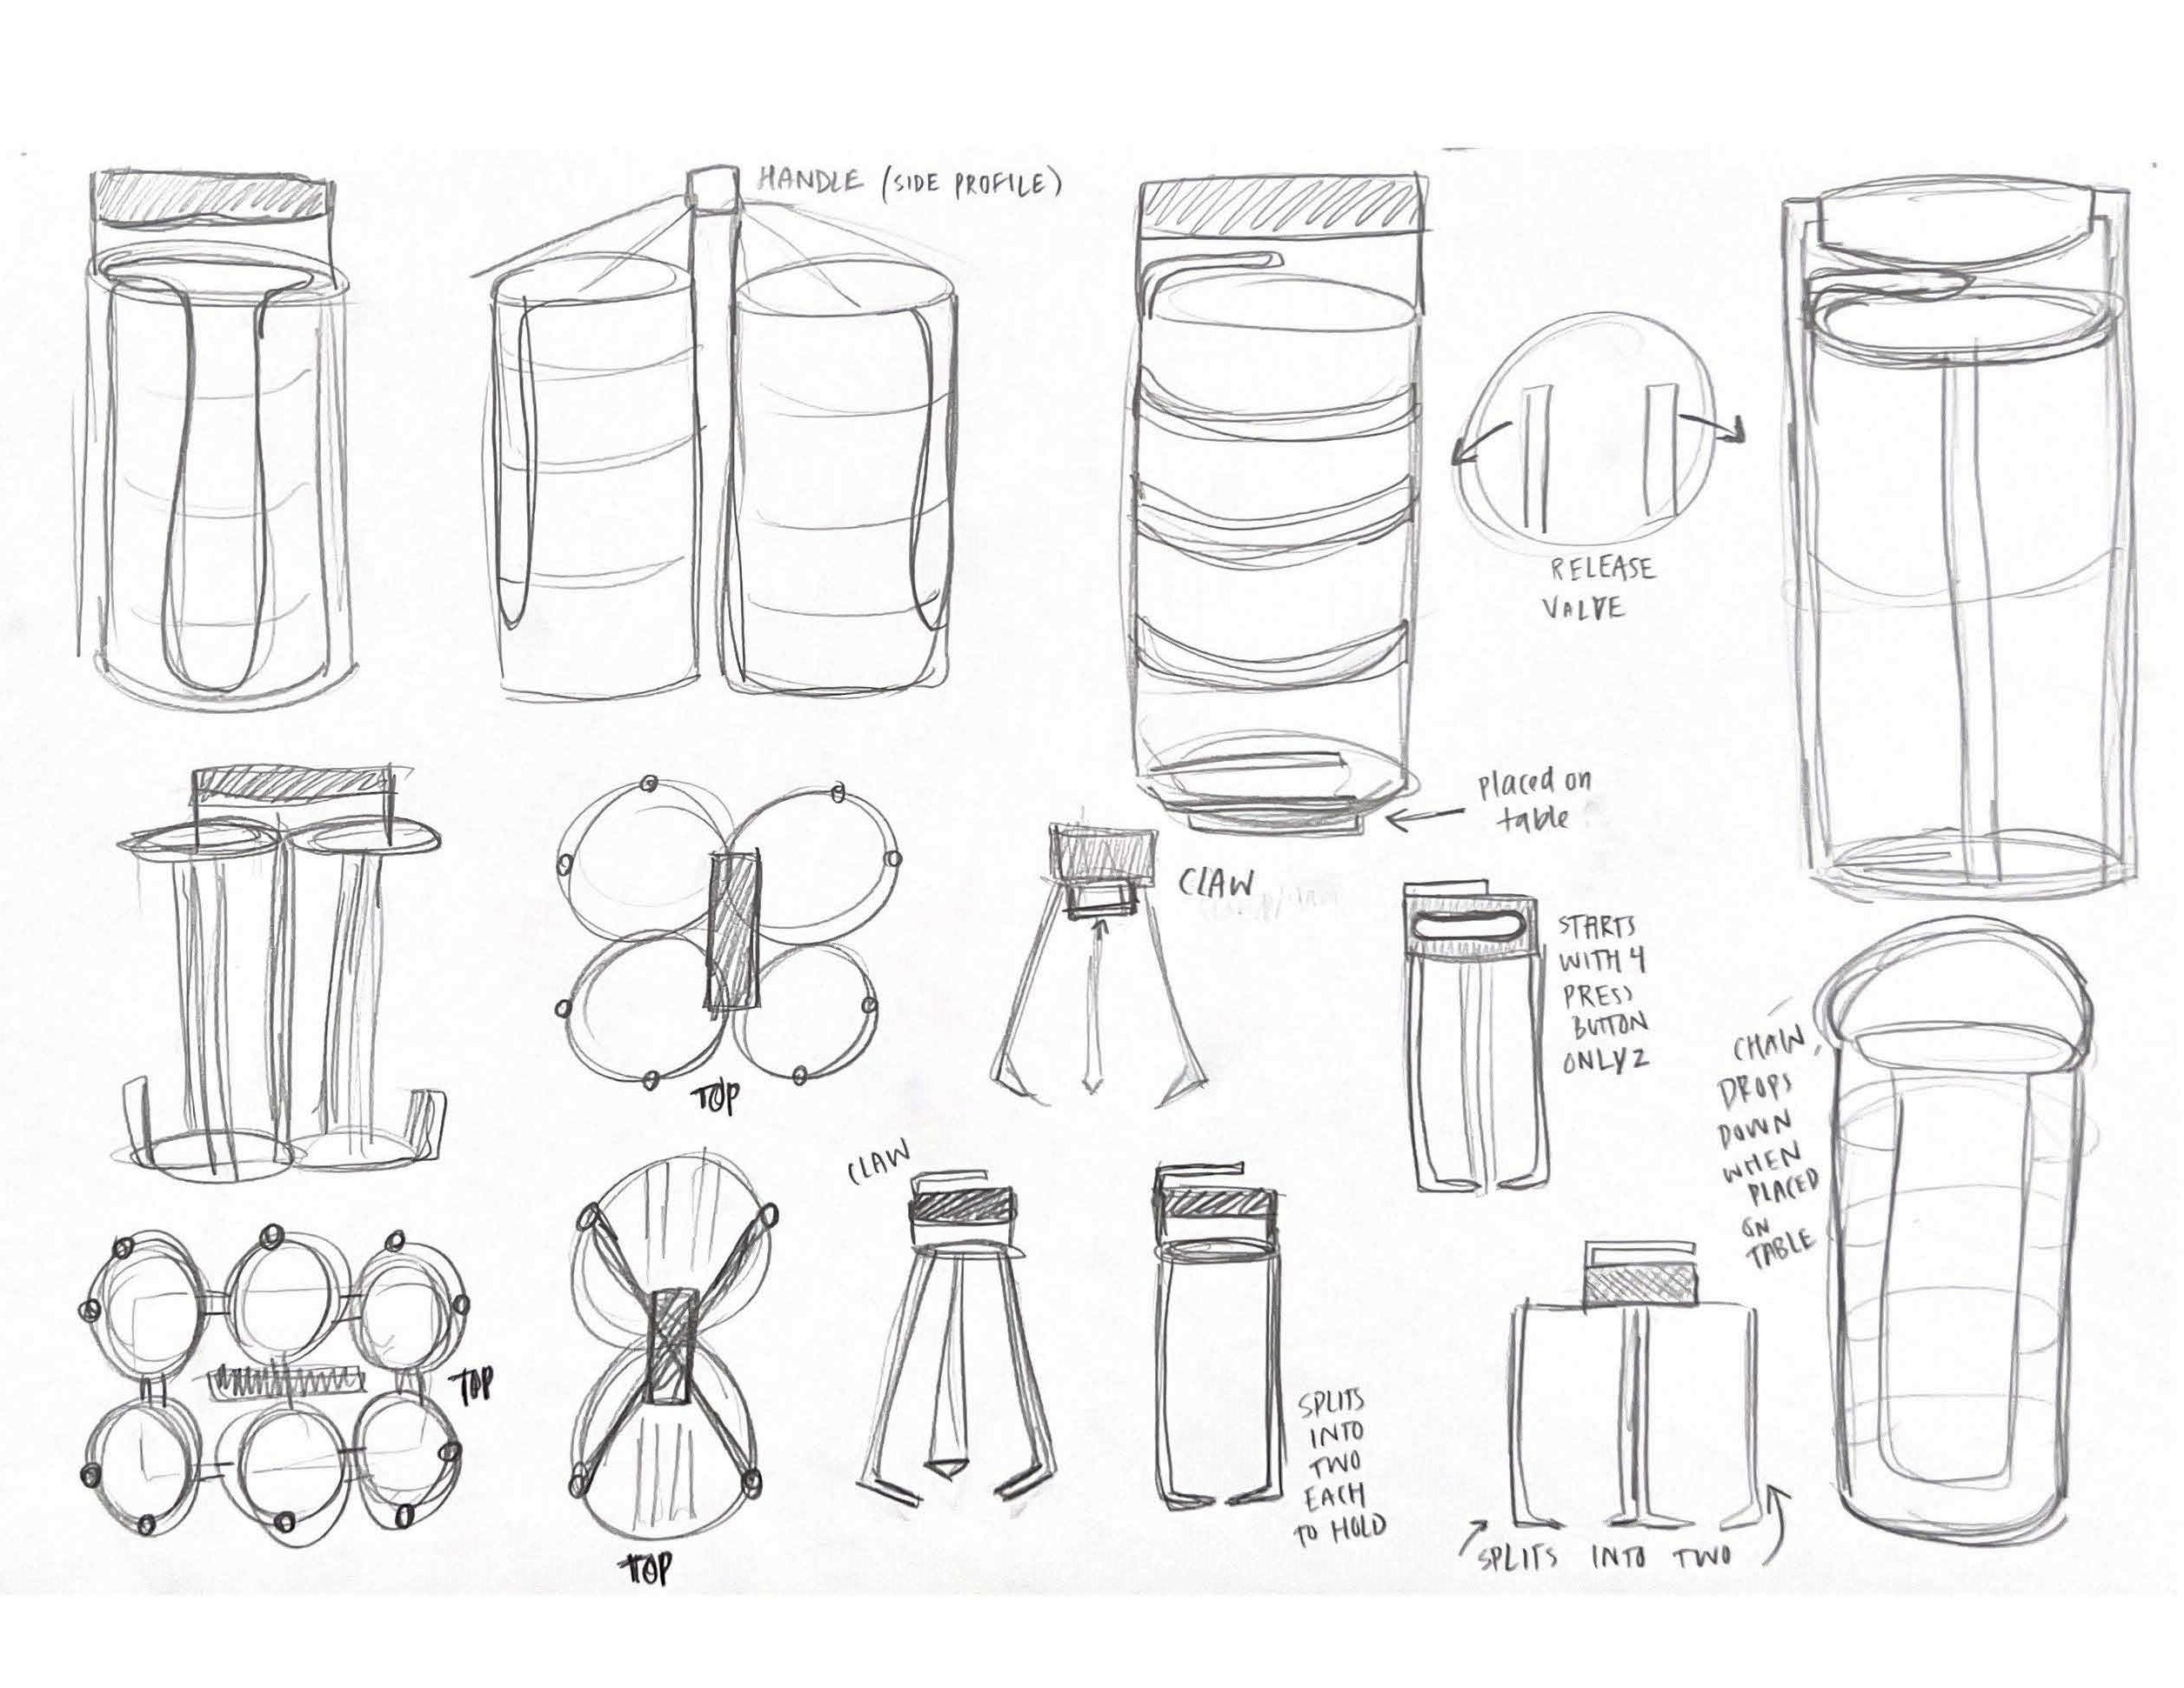 HANDLE (SIDE PROFILE)
RELEASE
VALVE
placed on
table
CLAW
STARTS
WITH 4
PRESS
BUTTON
ONLY 2
TOP
CHAIN
DROPS
DOWN
WHEN
PLACED
ON
TABLE
CLAW
TOP
SPLITS
INTO
TWO
EACH
TO HOLD
SPLITS INTO TWO
TOP